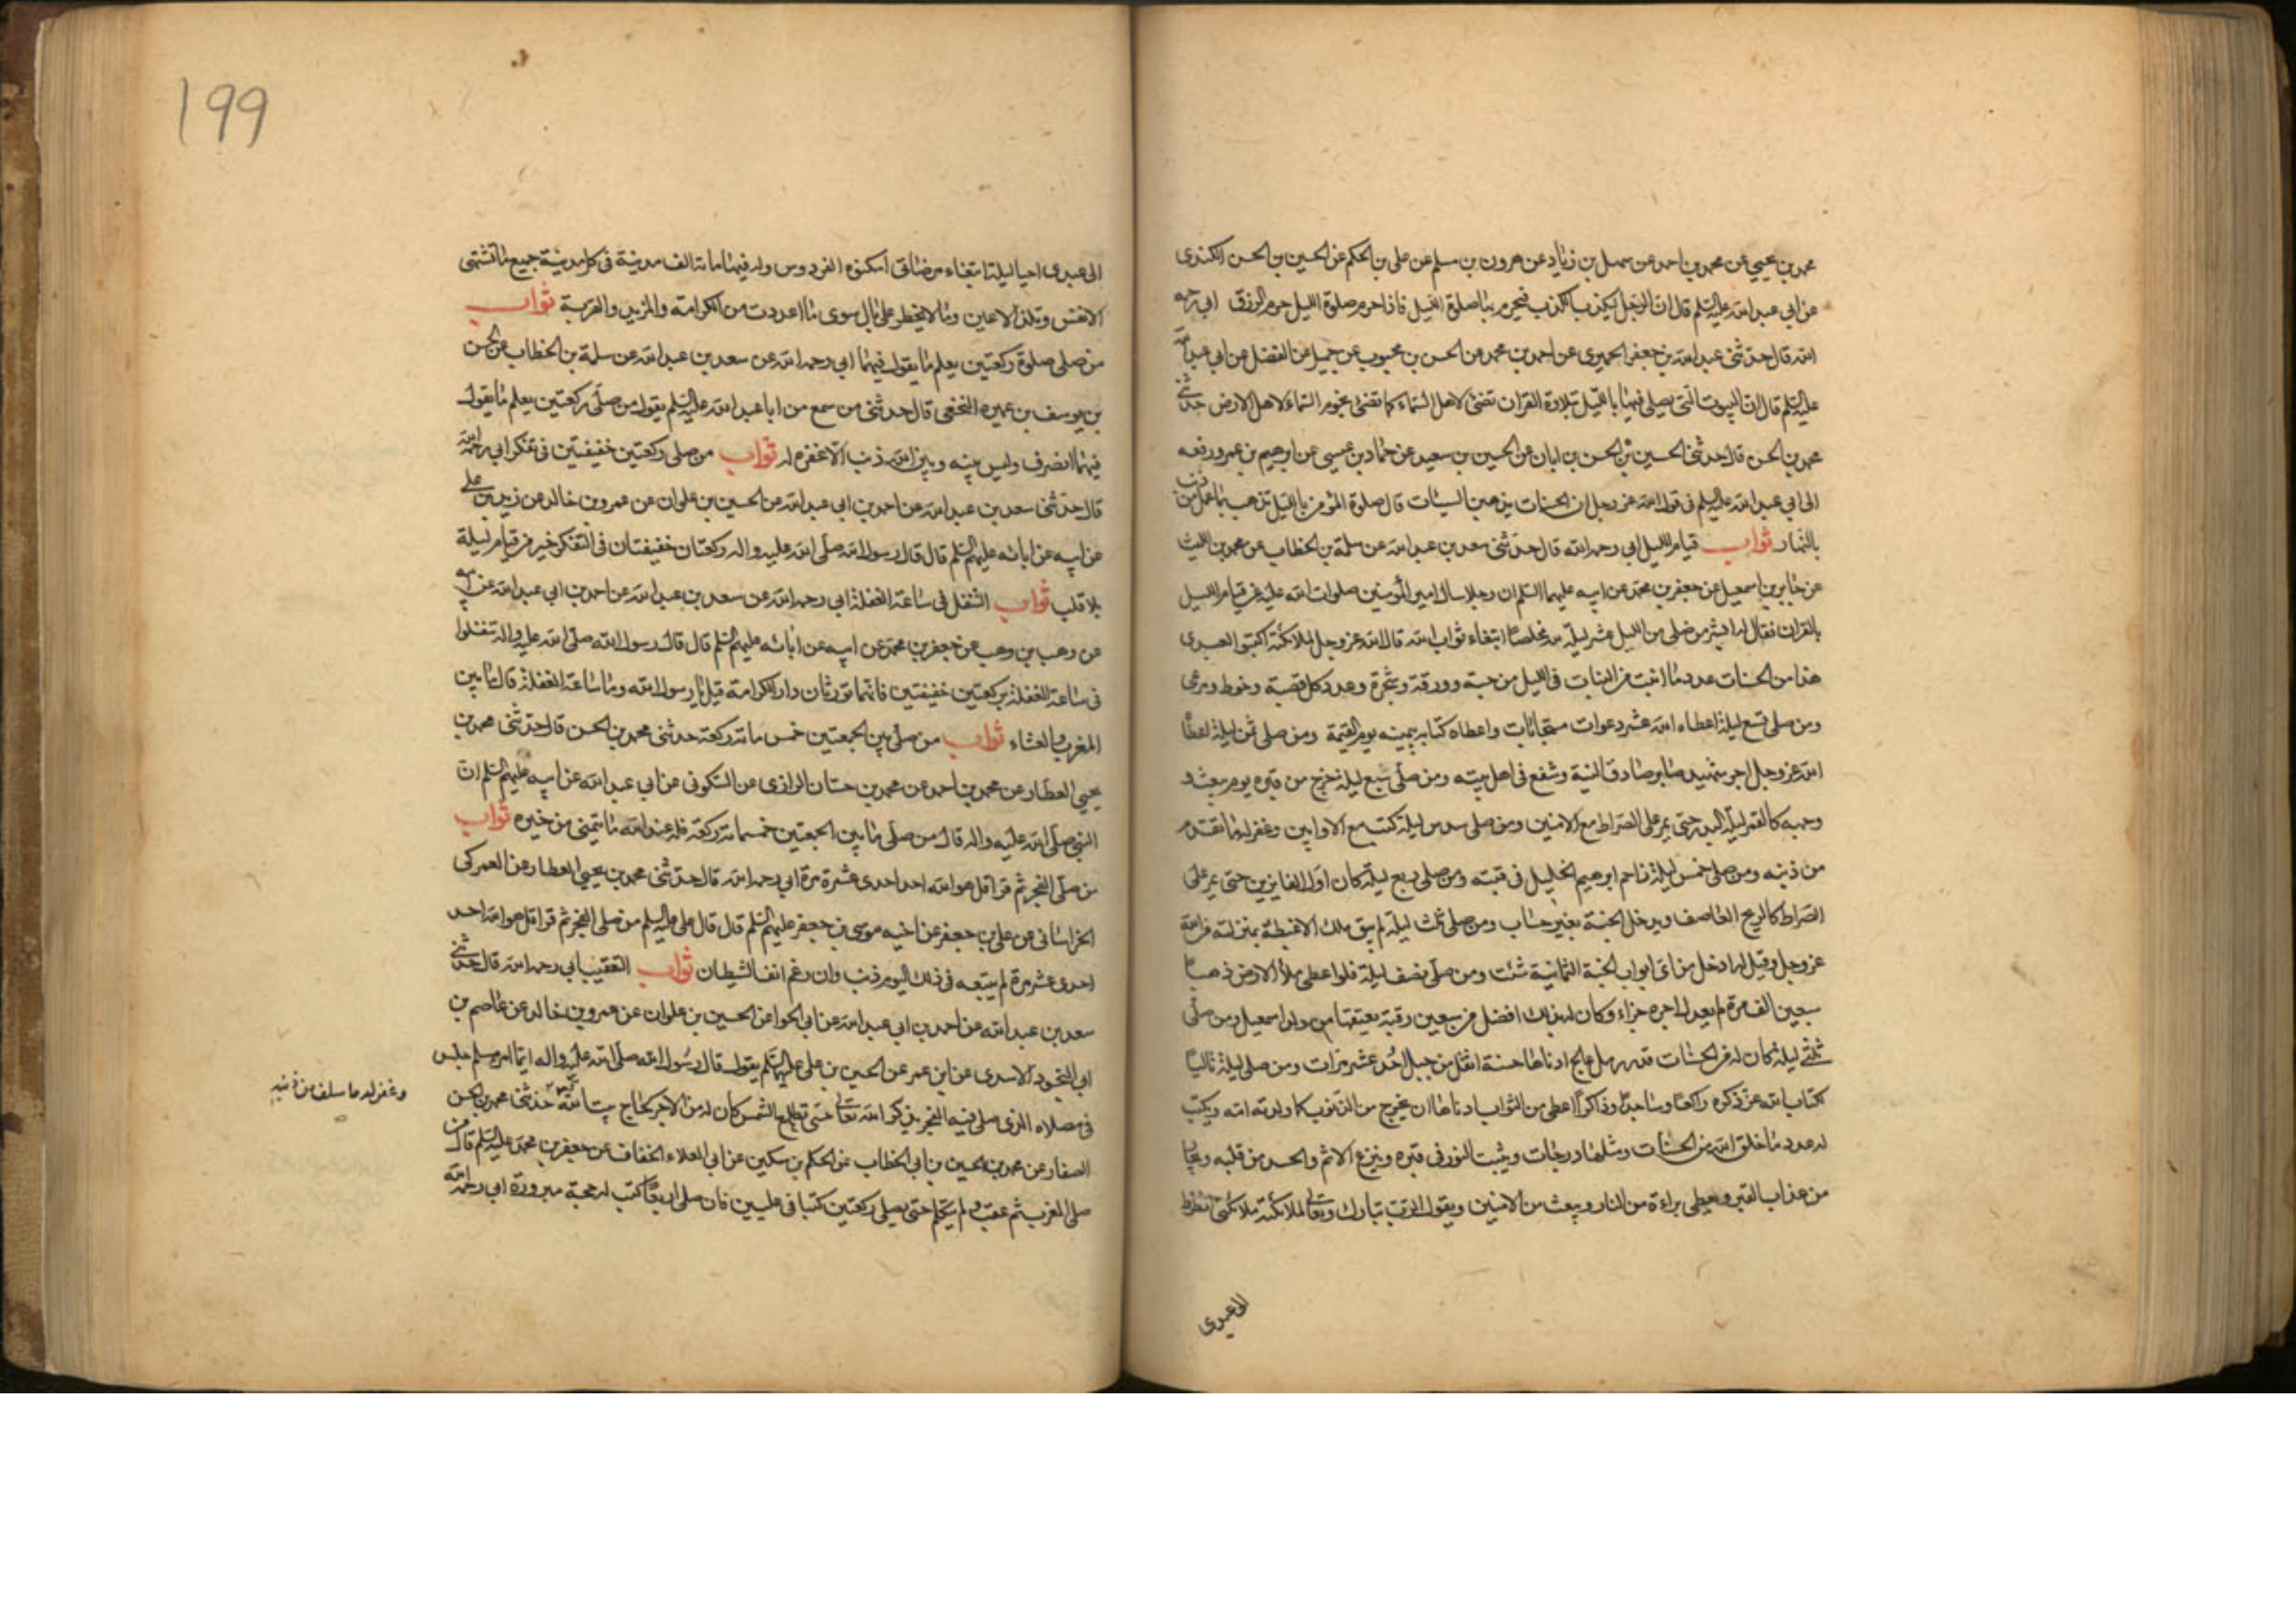 محمد بن يحيى عن محمد بن احمد عن سهل بن زياد عن هرون بن مسلم عن علي بن الحكم عن الحسين بن الحسن الكندى
عن ابي عبد الله عليه السلم قال ان الرجل ليكذب الكذب فيحرم بها صلوة الليل فاذا حرم صلوة الليل حرم الرزق ابي رحمه
الله قال حدثنى عبد الله بن جعفر الحميرى عن احمد بن محمد عن الحسن بن محبوب عن جميل عن الفضل عن ابي عبد الله
عليه السلم قال ان البيوت التى يصلى فيها بالليل بتلاوة القران تضئ لاهل السماء كما تضئ نجوم السماء لاهل الارض حدثنى
محمد بن الحسن قال حدثنى الحسين بن الحسن بن ابان عن الحسين بن سعيد عن حماد بن عيسى عن ابرهيم بن عمر ورفعه
الى ابي عبد الله عليه السلم فى قول الله عز وجل ان الحسنات يذهبن السيئات قال صلوة المؤمن بالليل تذهب بما عمل من ذنب
بالنهار ثواب قيام الليل ابي رحمه الله قال حدثنى سعد بن عبد الله عن سلمة بن الخطاب عن محمد بن الليث
عن جابر بن اسمعيل عن جعفر بن محمد عن ابيه عليهما السلم ان رجلا سال امير المؤمنين صلوات الله عليه عن قيام الليل
بالقران فقال له ابشر من صلى من الليل عشر ليلة لله مخلصا ابتغاء ثواب الله قال الله عز وجل لملائكته اكتبوا لعبدى
هذا من الحسنات عدد ما انبت من النبات فى الليل من حبة وورقة وشجرة وعدد كل قصبة وخوط ومرعى
ومن صلى تسع ليلة اعطاه الله عشر دعوات مستجابات واعطاه كتابه بيمينه يوم القيمة ومن صلى ثمن ليلة اعطاه
الله عز وجل اجر شهيد صابر صادق النية وشفع فى اهل بيته ومن صلى سبع ليلة خرج من قبره يوم يبعث و
وجهه كالقمر ليلة البدر حتى يمر على الصراط مع الامنين ومن صلى سدس ليلة كتب مع الاوابين وغفر له ما تقدم
من ذنبه ومن صلى خمس ليلة زاحم ابرهيم الخليل فى قبته ومن صلى ربع ليلة كان اول الفايزين حتى يمر على
الصراط كالريح العاصف ويدخل الجنة بغير حساب ومن صلى ثلث ليلة لم يبق ملك الا غبطه بمنزلته من الله
عز وجل وقيل له ادخل من اى ابواب الجنة الثمانية شئت ومن صلى نصف ليلة فلو اعطى ملأ الارض ذهبا
سبعين الف مرة لم يعدل اجره جزاء وكان له بذلك افضل من سبعين رقبة يعتقها من ولد اسمعيل ومن صلى
ثلثى ليلة كان له من الحسنات قدر رمل عالج ادناها حسنة اثقل من جبل احد عشر مرات ومن صلى ليلة تاليا
لكتاب الله عز ذكره راكعا وساجدا وذاكرا اعطى من الثواب ادناها ان يخرج من الذنوب كما ولدته امه ويكتب
له عدد ما خلق الله من الحسنات ومثلها درجات ويثبت النور فى قبره وينزع الاثم والحسد من قلبه ويجار
من عذاب القبر ويعطى براءة من النار ويبعث من الامنين ويقول الرب تبارك وتعالى لملائكته ملائكتى انظروا
الى عبدى
199
الى عبدى احيا ليلة ابتغاء مرضاتى اسكنوه الفردوس وله فيها مائة الف مدينة فى كل مدينة جميع ما تشتهى
الانفس وتلذ الاعين وما لا يخطر على بال سوى ما اعددت من الكرامة والمزيد والقربة ثواب
من صلى صلوة ركعتين يعلم ما يقول فيهما ابي رحمه الله عن سعد بن عبد الله عن سلمة بن الخطاب عن الحسن
بن يوسف بن عميره النخعى قال حدثنى من سمع من ابا عبد الله عليه السلم يقول من صلى ركعتين يعلم ما يقول
فيهما انصرف وليس بينه وبين الله ذنب الا غفره له ثواب من صلى ركعتين خفيفتين فى تفكر ابي رحمه الله
قال حدثنا سعد بن عبد الله عن احمد بن ابي عبد الله عن الحسين بن علوان عن عمرو بن خالد عن زيد بن على
عن ابيه عن ابائه عليهم السلم قال قال رسول الله صلى الله عليه واله ركعتان خفيفتان فى التفكر خير من قيام ليلة
بلا قلب ثواب التنفل فى ساعة الغفلة ابي رحمه الله عن سعد بن عبد الله عن احمد بن ابي عبد الله عن ابيه
عن وهب بن وهب عن جعفر بن محمد عن ابيه عن ابائه عليهم السلم قال قال رسول الله صلى الله عليه واله تنفلوا
فى ساعة الغفلة بركعتين خفيفتين فانهما تورثان دار الكرامة قيل يا رسول الله وما ساعة الغفلة قال ما بين
المغرب والعشاء ثواب من صلى بين الجمعتين خمس مائة ركعة حدثنى محمد بن الحسن قال حدثنى محمد بن
يحيى العطار عن محمد بن احمد عن محمد بن حسان الرازى عن السكونى عن ابي عبد الله عن ابيه عليهم السلم ان
النبي صلى الله عليه واله قال من صلى ما بين الجمعتين خمسمائة ركعة فله عند الله ما يتمنى من خيره ثواب
من صلى الفجر ثم قرا قل هو الله احد احدى عشرة مرة ابي رحمه الله قال حدثنى محمد بن يحيى العطار عن العمركى
الخراسانى عن على بن جعفر عن اخيه موسى بن جعفر عليهم السلم قال قال على عليه السلم من صلى الفجر ثم قرا قل هو الله احد
احدى عشر مرة لم يتبعه فى ذلك اليوم ذنب وان رغم انف الشيطان ثواب التعقيب ابي رحمه الله قال حدثنى
سعد بن عبد الله عن احمد بن ابي عبد الله عن ابي الجوا عن الحسين بن علوان عن عمرو بن خالد عن عاصم بن
ابي النجود الاسدى عن ابن عمر عن الحسين بن على عليهما السلم يقول قال رسول الله صلى الله عليه واله ايما امرء مسلم جلس
فى مصلاه الذى صلى فيه الفجر يذكر الله تعالى حتى تطلع الشمس كان له من الاجر كحاج بيت الله حدثنى محمد بن الحسن
وغفر له ما سلف من ذنبه
الصفار عن محمد بن الحسين بن ابي الخطاب عن الحكم بن مسكين عن ابي العلاء الخفاف عن جعفر بن محمد عليه السلم قال من
صلى المغرب ثم عقب ولم يتكلم حتى يصلى ركعتين كتبا فى عليين فان صلى اربعا كتب له حجة مبرورة ابي رحمه الله